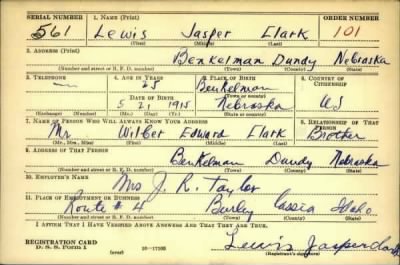 SERIAL NUMBER 1. NAME (Print) ORDER NUMBER
561 Lewis Jasper Clark 101
(First) (Middle) (Last)
2. ADDRESS (Print)
Benkelman Dundy Nebraska
(Number and street or R. F. D. number) (Town) (County) (State)
3. TELEPHONE 4. AGE IN YEARS 5. PLACE OF BIRTH 6. COUNTRY OF CITIZENSHIP
— 25 Benkelman
DATE OF BIRTH (Town or county)
5 21 1915 Nebraska US
(Exchange) (Number) (Mo.) (Day) (Yr.) (State or country)
7. NAME OF PERSON WHO WILL ALWAYS KNOW YOUR ADDRESS 8. RELATIONSHIP OF THAT PERSON
Mr. Wilber Edward Clark Brother
(Mr., Mrs., Miss) (First) (Middle) (Last)
9. ADDRESS OF THAT PERSON
Benkelman Dundy Nebraska
(Number and street or R. F. D. number) (Town) (County) (State)
10. EMPLOYER'S NAME
Mrs J. R. Taylor
11. PLACE OF EMPLOYMENT OR BUSINESS
Route #4 Burley Cassia Idaho
(Number and street or R. F. D. number) (Town) (County) (State)
I AFFIRM THAT I HAVE VERIFIED ABOVE ANSWERS AND THAT THEY ARE TRUE.
REGISTRATION CARD
D. S. S. Form 1 (over) 16—17105 Lewis Jasper Clark
(Registrant's signature)